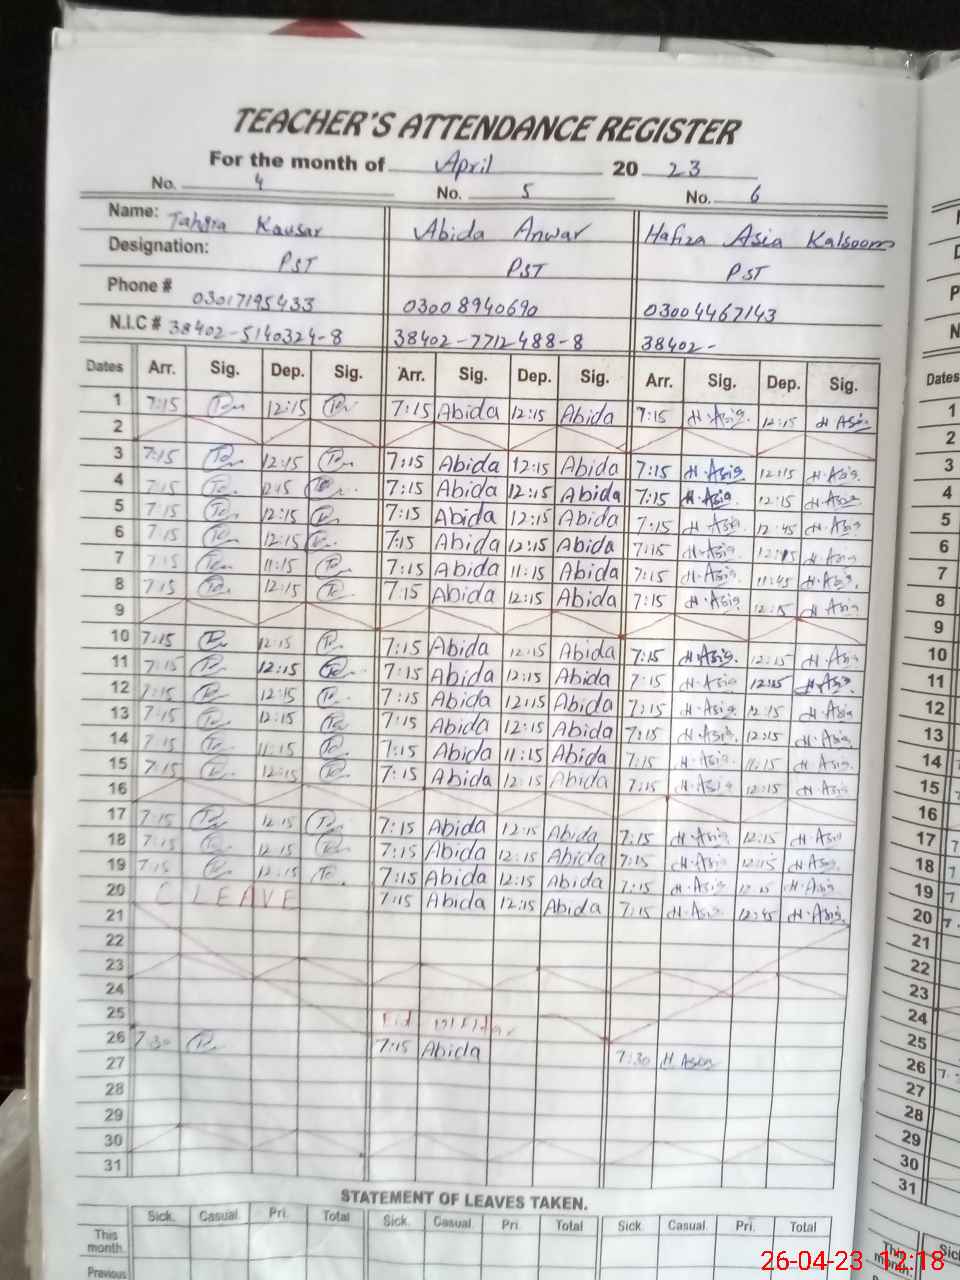 TEACHER'S ATTENDANCE REGISTER
For the month of April 2023
No. 4 No. 5 No. 6
Name: Tahira Kausar Abida Anwar Hafiza Asia Kalsoom
Designation: PST PST PST
Phone # 03017195433 03008940690 03004467143
N.I.C # 38402-5140324-8 38402-7712488-8 38402-
Dates Arr. Sig. Dep. Sig. Arr. Sig. Dep. Sig. Arr. Sig. Dep. Sig. Dates
1 7:15 12:15 7:15 Abida 12:15 Abida 7:15 H.Asia 12:15 H Asia 1
2 2
3 7:15 12:15 7:15 Abida 12:15 Abida 7:15 H.Asia 12:15 H.Asia 3
4 7:15 12:15 7:15 Abida 12:15 Abida 7:15 H.Asia 12:15 H.Asia 4
5 7:15 12:15 7:15 Abida 12:15 Abida 7:15 H.Asia 12:45 H.Asia 5
6 7:15 12:15 7:15 Abida 12:15 Abida 7:15 H.Asia 12:15 H.Asia 6
7 7:15 11:15 7:15 Abida 11:15 Abida 7:15 H.Asia 11:45 H.Asia 7
8 7:15 12:15 7:15 Abida 12:15 Abida 7:15 H.Asia 12:15 H Asia 8
9 9
10 7:15 12:15 7:15 Abida 12:15 Abida 7:15 H.Asia 12:15 H.Asia 10
11 7:15 12:15 7:15 Abida 12:15 Abida 7:15 H.Asia 12:15 H.Asia 11
12 7:15 12:15 7:15 Abida 12:15 Abida 7:15 H.Asia 12:15 H.Asia 12
13 7:15 12:15 7:15 Abida 12:15 Abida 7:15 H.Asia 12:15 H.Asia 13
14 7:15 11:15 7:15 Abida 11:15 Abida 7:15 H.Asia 11:15 H.Asia 14
15 7:15 12:15 7:15 Abida 12:15 Abida 7:15 H.Asia 12:15 H.Asia 15
16 16
17 7:15 12:15 7:15 Abida 12:15 Abida 7:15 H.Asia 12:15 H.Asia 17
18 7:15 12:15 7:15 Abida 12:15 Abida 7:15 H.Asia 12:15 H.Asia 18
19 7:15 12:15 7:15 Abida 12:15 Abida 7:15 H.Asia 12:15 H.Asia 19
20 C LEAVE 7:15 Abida 12:15 Abida 7:15 H.Asia 12:45 H.Asia 20
21 21
22 22
23 23
24 24
25 Eid 25
26 7:30 7:15 Abida 7:30 H Asia 26
27 27
28 28
29 29
30 30
31 31
STATEMENT OF LEAVES TAKEN.
Sick. Casual. Pri. Total Sick. Casual. Pri. Total Sick. Casual. Pri. Total
This month.
Previous
26-04-23 12:18